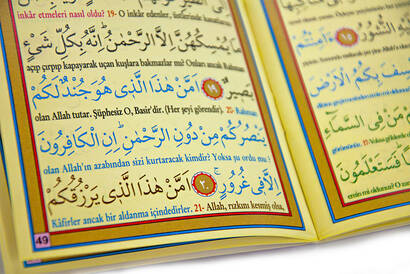 inkâr etmeleri nasıl oldu? 19- O inkâr edenler, üstlerinde
مَا يُمْسِكُهُنَّ اِلَّا الرَّحْمٰنُ اِنَّهُ بِكُلِّ شَيْءٍ
açıp çırpıp kapayarak uçan kuşlara bakmazlar mı? Onları ancak Rahman
بَصِيرٌ ١٩ اَمَّنْ هٰذَا الَّذِي هُوَ جُنْدٌ لَكُمْ
olan Allah tutar. Şüphesiz O, Basir'dir. (Her şeyi görendir). 20- Rahman
يَنْصُرُكُمْ مِنْ دُونِ الرَّحْمٰنِ اِنِ الْكَافِرُونَ
olan Allah'ın azabından sizi kurtaracak kimdir? Yoksa şu ordu mu?
اِلَّا فِي غُرُورٍ ٢٠ اَمَّنْ هٰذَا الَّذِي يَرْزُقُكُمْ
Kâfirler ancak bir aldanma içindedirler. 21- Allah, rızkını kesmiş olsa,
49
النُّشُورُ ١٥ ءَاَمِنْتُمْ
يَخْسِفَ بِكُمُ الْاَرْضَ
مَنْ فِي السَّمَاءِ
فَسَتَعْلَمُونَ